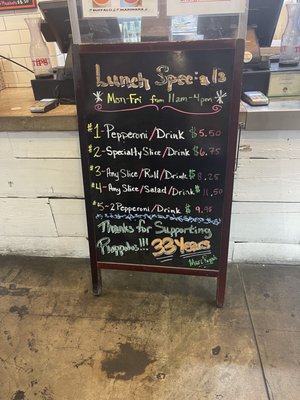 BUFFALO MARINARA
Lunch Specials
Mon-Fri from 11am-4pm
#1-Pepperoni/Drink $5.50
#2-Specialty Slice/Drink $6.75
#3-Any Slice/Roll/Drink $8.25
#4-Any Slice/Salad/Drink $11.50
#5-2 Pepperoni/Drink $9.95
Thanks for Supporting
33 Years